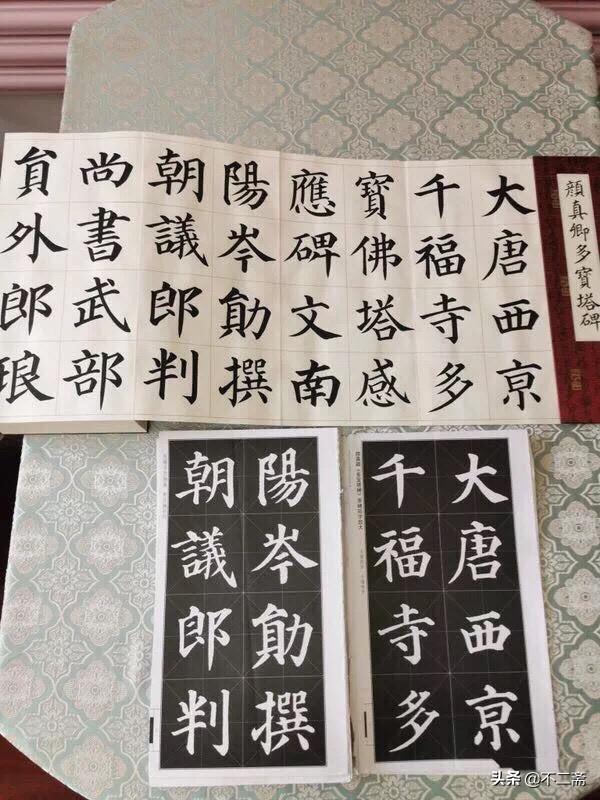 顏真卿多寶塔碑
大唐西亰
千福寺多
寶佛塔感
應碑文南
陽岑勛撰
朝議郎判
尚書武部
貟外郎琅
大唐西亰
千福寺多
陽岑勛撰
朝議郎判
头条 @不二斋